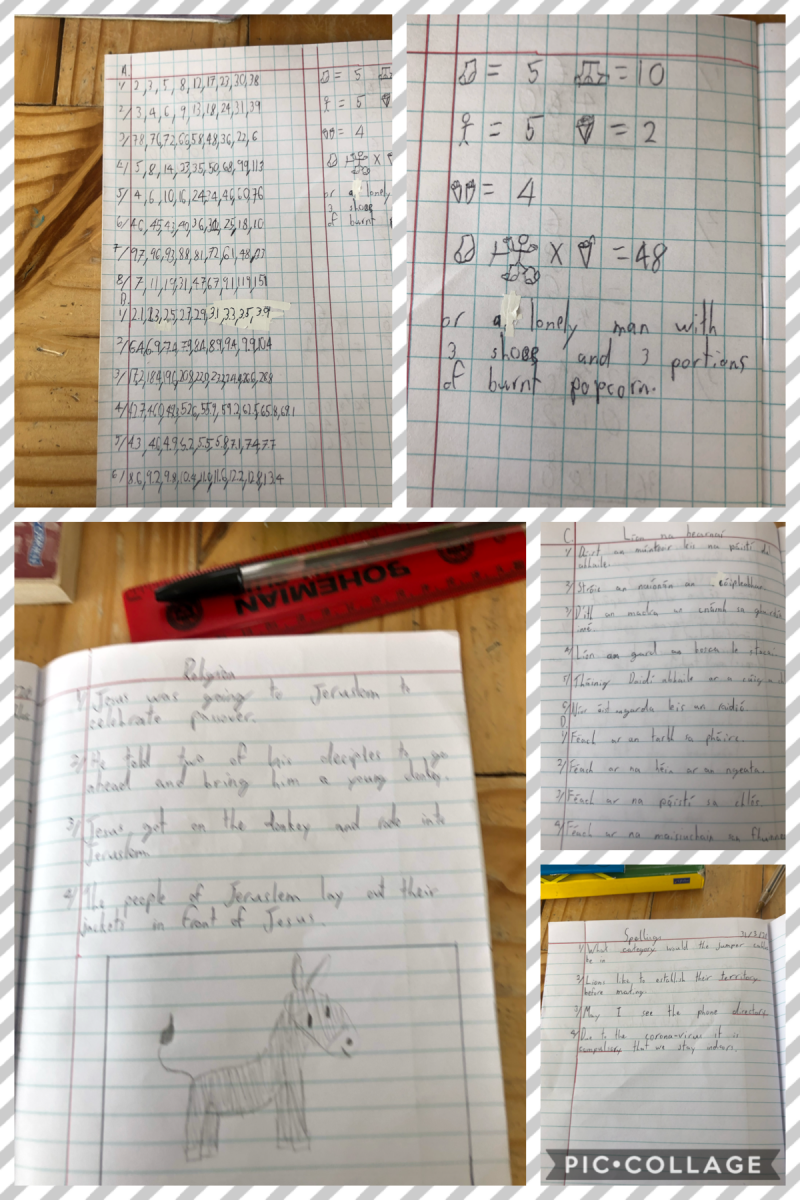 A
1/ 2, 3, 5, 8, 12, 17, 23, 30, 38
2/ 3, 4, 6, 9, 13, 18, 24, 31, 39
3/ 78, 76, 72, 66, 58, 48, 36, 22, 6
4/ 5, 8, 14, 23, 35, 50, 68, 99, 113
5/ 4, 6, 10, 16, 24, 34, 46, 60, 76
6/ 46, 45, 43, 40, 36, 31, 25, 18, 10
7/ 97, 96, 93, 88, 81, 72, 61, 48, 33
8/ 7, 11, 19, 31, 47, 67, 91, 119, 151
B.
1/ 21, 23, 25, 27, 29, 31, 33, 35, 39
2/ 64, 69, 74, 79, 84, 89, 94, 99, 104
4/ 427, 460, 493, 526, 559, 592, 625, 658, 691
5/ 43, 46, 49, 52, 55, 58, 71, 74, 77
6/ 8.6, 9.2, 9.8, 10.4, 11.0, 11.6, 12.2, 12.8, 13.4
= 5
= 5
= 4
X
or a lonely
3 shoes
of burnt
= 5 = 10
= 5 = 2
= 4
+ X = 48
or a lonely man with
3 shoes and 3 portions
of burnt popcorn.
BOHEMIAN
Religion
1/ Jesus was going to Jeruslem to
celebrate pasover.
2/ He told two of his deciples to go
ahead and bring him a young donkey.
3/ Jesus got on the donkey and rode into
Jeruslem
4/ The people of Jeruslem lay out their
jackets in front of Jesus.
C. Líon na bearnaí
1/ an múinteoir leis na páistí dul
abhaile.
2/ Stróic an naíonán an
3/ an madra an cnámh sa
inné.
4/ Líon an garda na
5/ Tháinig Daidí abhaile
6/ Níor éist leis an raidió.
D.
1/ Féach ar an tarbh sa pháirc.
2/ Féach ar na héin ar an ngeata.
3/ Féach ar na páistí sa chlós
4/ Féach ar na
Spellings
1/ What category would the jumper
be in
2/ Lions like to establish their territory
before mating.
3/ May I see the phone directory
4/ Due to the corona-virus it is
compulsory that we stay indoors.
PIC•COLLAGE